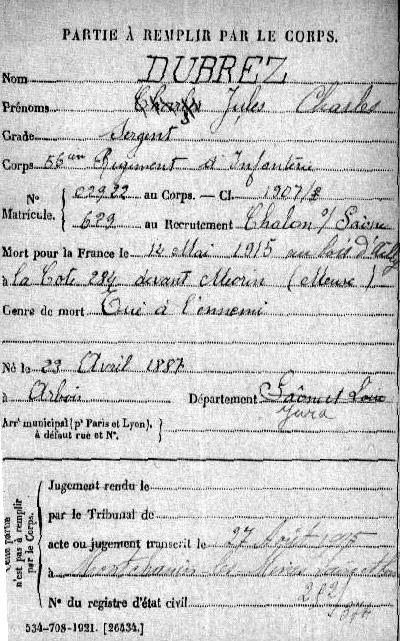 PARTIE À REMPLIR PAR LE CORPS.
Nom DUBREZ
Prénoms Charles Jules Charles
Grade Sergent
Corps 56ème Régiment d'Infanterie
N° Matricule. { 02922 au Corps. — Cl. 1907
629 au Recrutement Chalon s/ Saône
Mort pour la France le 12 Mai 1915 au bois d'Ailly
à la Cote 284 devant (Meuse)
Genre de mort Tué à l'ennemi
Né le 23 Avril 1887
à Arbois Département Saône et Loire
Jura
Arrt municipal (pr Paris et Lyon), à défaut rue et N°.
Cette partie n'est pas à remplir par le Corps.
Jugement rendu le
par le Tribunal de
acte ou jugement transcrit le 27 Août 1915
à Montchanin les Mines
N° du registre d'état civil
534-708-1921. [26434.]